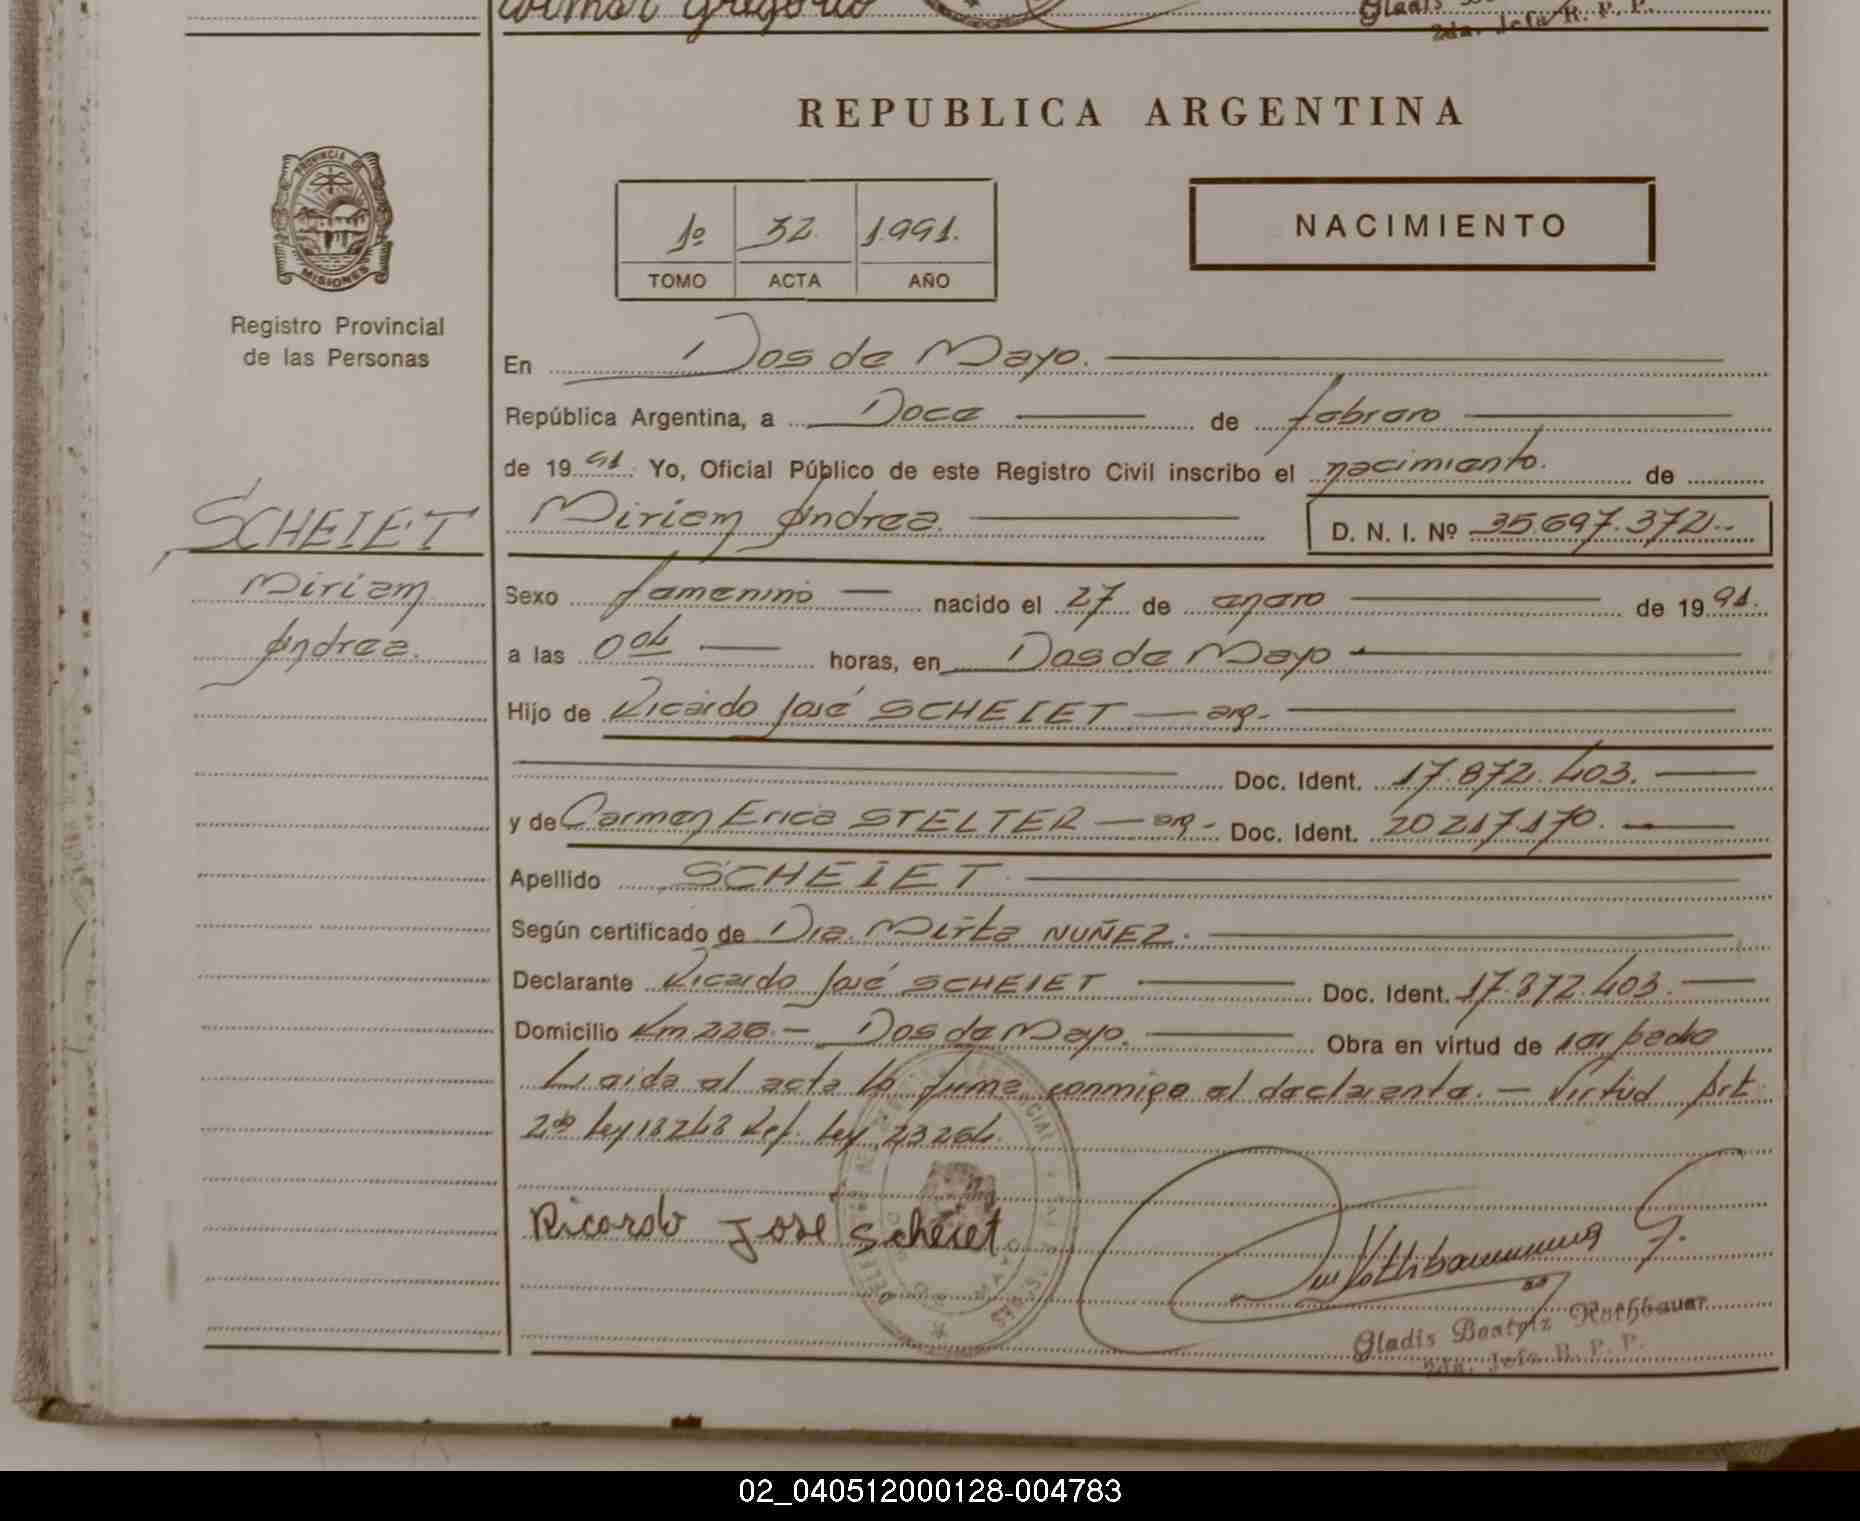 Gladis
2da. Jefa R. P. P.
REPUBLICA ARGENTINA
PROVINCIA DE
MISIONES
1º 32. 1.991.
TOMO ACTA AÑO
NACIMIENTO
Registro Provincial
de las Personas
En Dos de Mayo.
República Argentina, a Doce de febrero
de 1991. Yo, Oficial Público de este Registro Civil inscribo el nacimiento. de
Miriam Andrea. D. N. I. Nº 35.697.372.
SCHEIET
Miriam
Andrea.
Sexo femenino nacido el 27 de enero de 1991.
a las 004 horas, en Dos de Mayo
Hijo de Ricardo José SCHEIET — arg.
Doc. Ident. 17.872.403.
y de Carmen Erica STELTER — arg. Doc. Ident. 20217.170.
Apellido SCHEIET
Según certificado de Dra. Mirta NUÑEZ.
Declarante Ricardo José SCHEIET Doc. Ident. 17.872.403.
Domicilio Km 226. — Dos de Mayo. Obra en virtud de ser padre
Leida el acta la firma conmigo el declarante. — Virtud Art.
2do Ley 18248 Ref. Ley 23264.
Ricardo Jose Scheiet
Gladis Beatriz Rothbauer
2da. Jefa R. P. P.
02_040512000128-004783